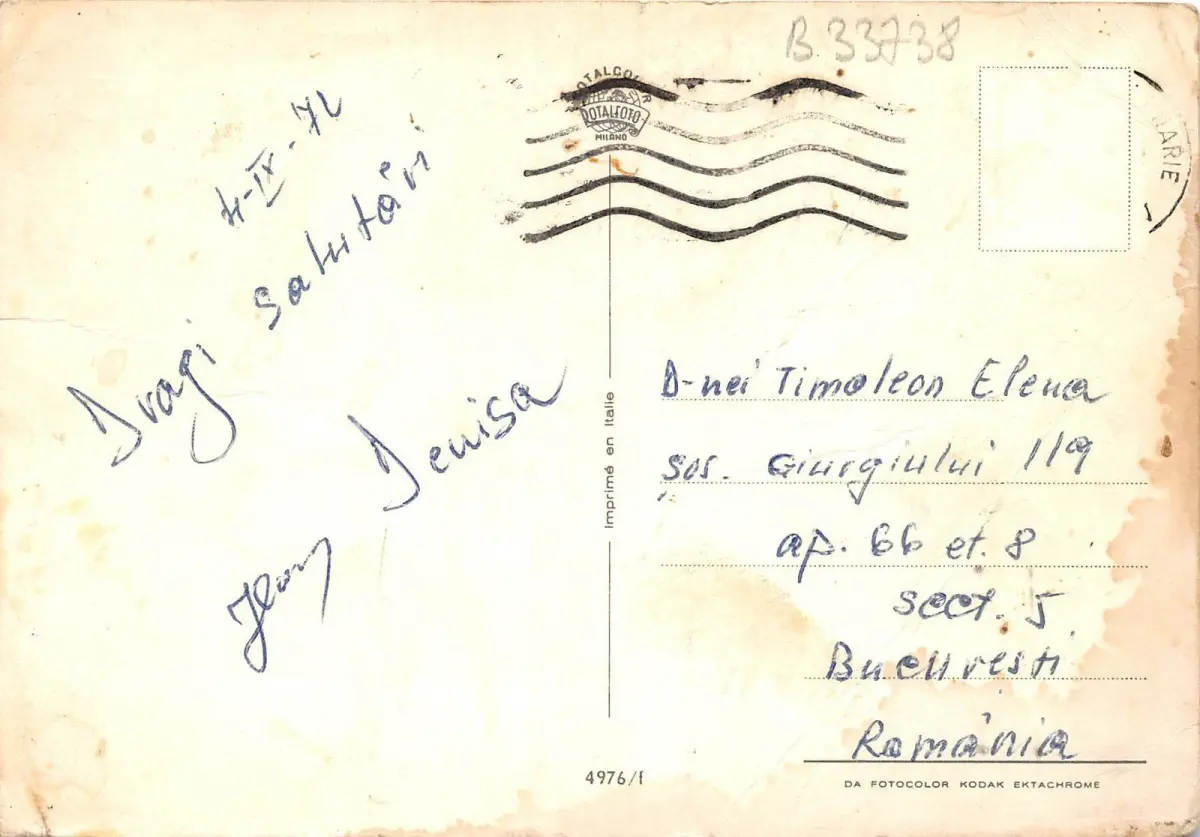 B.33738
ROTALCOLOR
ROTALFOTO
MILANO
ARIE
4-IX-72
Dragi salutări
Denisa
Imprimé en Italie
D-nei Timoleon Elena
Șos. Giurgiului 119
ap. 66 et. 8
sect. 5
București
România
4976/f
DA FOTOCOLOR KODAK EKTACHROME